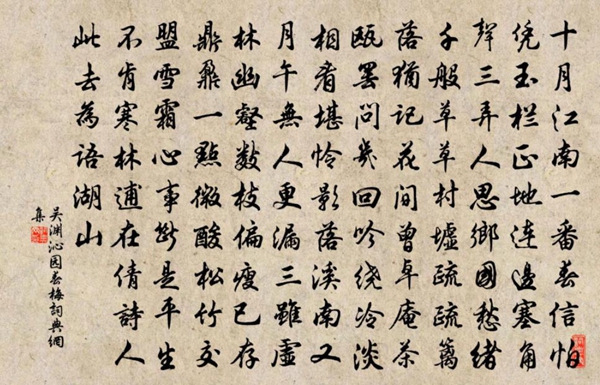 十月江南一番春信怕
凭玉栏正地連邊塞角
聲三弄人思鄉國愁緒
千般草草村墟疏疏籬
落猶記花間曾卓庵茶
甌罢問幾回吟绕冷淡
相看堪怜影落溪南又
月午無人更漏三雖虛
林幽壑數枝偏瘦已存
鼎鼐一點微酸松竹交
盟雪霜心事斷是平生
不肯寒林逋在倩詩人
此去為語湖山
吴渊沁园春梅詞典網
集